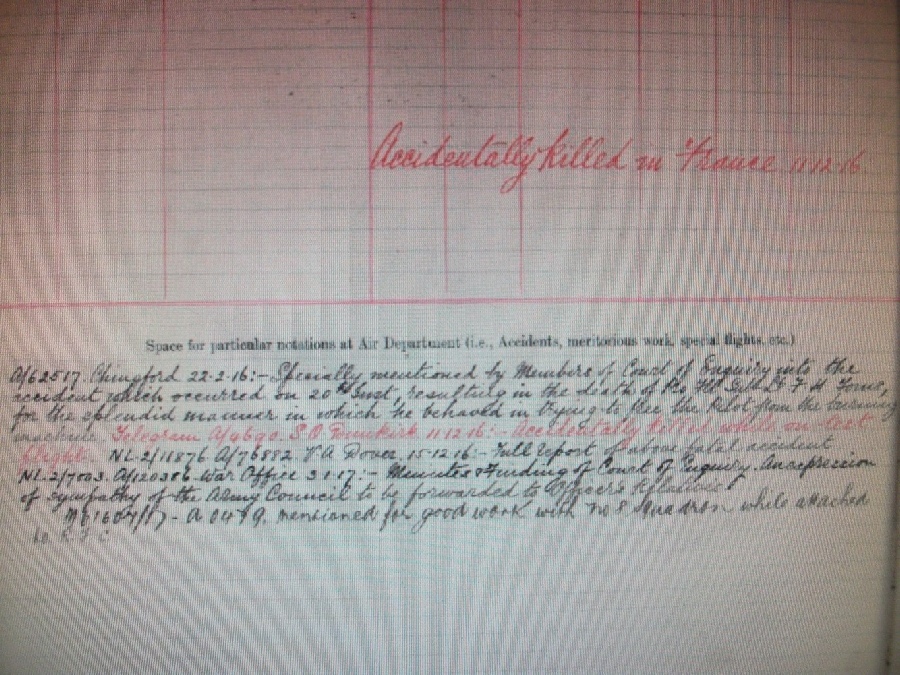 Accidentally killed in France 11-12-16
Space for particular notations at Air Department (i.e., Accidents, meritorious work, special flights, etc.)
A/62517 Chingford 22-2-16:- Specially mentioned by Members of Court of Enquiry into the
accident which occurred on 20th Inst, resulting in the death of
for the splendid manner in which he behaved in trying to free the Pilot from the burning
machine. Telegram S.O. Dunkirk 11-12-16:- Accidentally killed while on test
flight. N.L. 2/11876 A/76882 V.A. Dover 15-12-16:- Full report of above fatal accident
N.L. 2/7003 A/120386 War Office 3-1-17:- Minutes & Finding of Court of Enquiry. An expression
of sympathy of the Army Council to be forwarded to Officer's Relatives
mentioned for good work with No 8 Squadron while attached
to